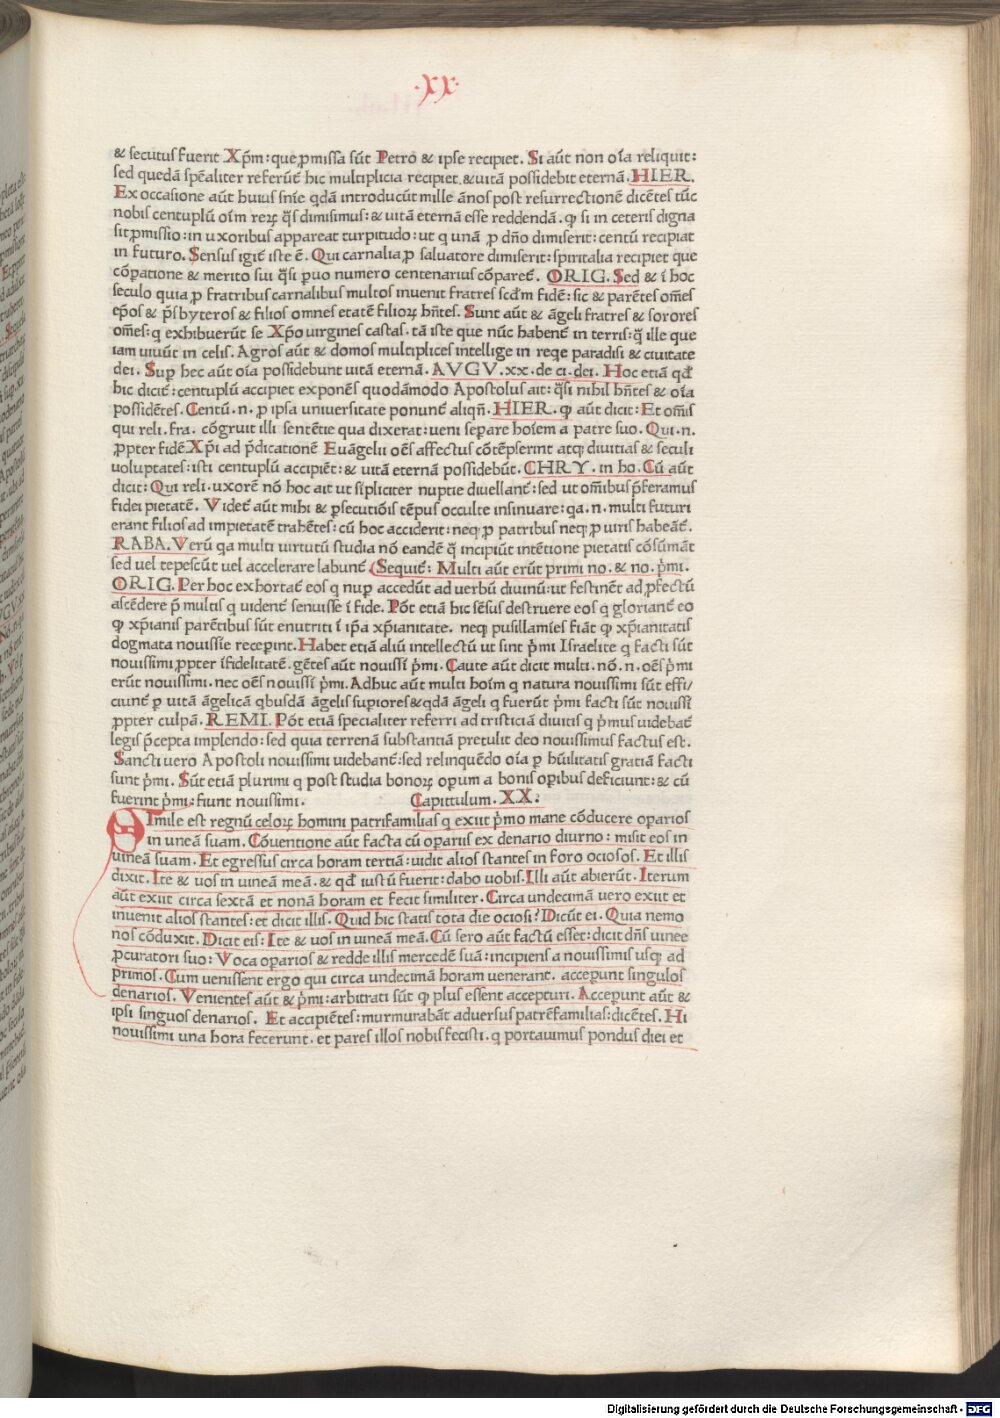 ·XX·
& secutus fuerit Xp̄m: que ꝓmissa sūt Petro & ipse recipiet. Si aūt non oīa reliquit:
sed quedā spēaliter referūt̄ hic multiplicia recipiet.& uitā possidebit eternā. HIER.
Ex occasione aūt huius snīe qdā introducūt mille ānos post resurrectionē dicētes tūc
nobis centuplū oīm reꝝ qs̄ dimisimus: & uitā eternā esse reddendā. ꝙ si in ceteris digna
sit ꝓmissio: in uxoribus appareat turpitudo: ut q unā ꝓ dño dimiserit: centū recipiat
in futuro. Sensus igit̄ iste ē. Qui carnalia ꝓ saluatore dimiserit: spiritalia recipiet que
cōꝑatione & merito sui qs̄i ꝑuo numero centenarius cōparet̄. ORIG. Sed & ī hoc
seculo quia ꝓ fratribus carnalibus multos inuenit fratres scd̄m fidē: sic & parētes om̄es
ep̄os & p̄sbyteros & filios omnes etatē filioꝝ hn̄tes. Sunt aūt & āgeli fratres & sorores
om̄es: q exhibuerūt se Xp̄o uirgines castas. tā iste que nūc habent̄ in terris: q̄ ille que
iam uiuūt in celis. Agros aūt & domos multiplices intellige in reqe paradisi & ciuitate
dei. Suꝑ hec aūt oīa possidebunt uitā eternā. AVGV. xx. de ci. dei. Hoc etiā qd̄
hic dicit̄: centuplū accipiet exponēs quodāmodo Apostolus ait: qs̄i nihil hn̄tes & oīa
possidētes. Centū. n. ꝓ ipsa uniuersitate ponunt̄ aliqn̄. HIER. ꝙ aūt dicit: Et om̄is
qui reli. fra. cōgruit illi sentētie qua dixerat: ueni seꝑare hoīem a patre suo. Qui. n.
ꝓpter fidē Xp̄i ad p̄dicationē Euāgelii oēs affectus cōtēpserint atqꝫ diuitias & seculi
uoluptates: isti centuplū accipiēt: & uitā eternā possidebūt. CHRY. in ho. Cū aūt
dicit: Qui reli. uxorē nō hoc ait ut sīpliciter nuptie diuellant̄: sed ut om̄ibus p̄feramus
fidei pietatē. Videt̄ aūt mihi & ꝑsecutiōis tēpus occulte insinuare: qa. n. multi futuri
erant filios ad impietatē trahētes: cū hoc acciderit: neqꝫ ꝓ patribus neqꝫ ꝓ uiris habeāt̄.
RABA. Verū qa multi uirtutū studia nō eandē q̄ incipiūt intētione pietatis cōsūmāt
sed uel tepescūt uel accelerare labunt̄ (Sequit̄: Multi aūt erūt primi no. & no. p̄mi.
ORIG. Per hoc exhortat̄ eos q nuꝑ accedūt ad uerbū diuinū: ut festinēt ad ꝑfectū
ascēdere p̄ multis q uident̄ senuisse ī fide. Pōt etiā hic sēsus destruere eos q gloriant̄ eo
ꝙ xp̄ianis parētibus sūt enutriti ī ip̄a xp̄ianitate. neqꝫ pusillamīes fiāt ꝙ xp̄ianitatis
dogmata nouissīe recepint̄. Habet etiā aliū intellectū ut sint p̄mi Israelite q facti sūt
nouissimi ꝓpter īfidelitatē. gētes aūt nouissī p̄mi. Caute aūt dicit multi. nō. n. oēs p̄mi
erūt nouissimi. nec oēs nouissī p̄mi. Adhuc aūt multi hoīm q natura nouissimi sūt effi/
ciunt̄ ꝑ uitā āgelicā qbusdā āgelis supiores & qdā āgeli q fuerūt p̄mi facti sūt nouissī
ꝓpter culpā. REMI. Pōt etiā specialiter referri ad tristiciā diuitis q p̄mus uidebat̄
legis p̄cepta implendo: sed quia terrenā substantiā pretulit deo nouissimus factus est.
Sancti uero Apostoli nouissimi uidebant̄: sed relinquēdo oīa ꝑ hūilitatis gratiā facti
sunt p̄mi. Sūt etiā plurimi q post studia bonoꝝ oꝑum a bonis oꝑibus deficiunt: & cū
fuerint p̄mi: fiunt nouissimi. Capitulum. XX:
SImile est regnū celoꝝ homini patrifamilias q exiit p̄mo mane cōducere oꝑarios
in uineā suam. Cōuentione aūt facta cū oꝑariis ex denario diurno: misit eos in
uineā suam. Et egressus circa horam tertiā: uidit alios stantes in foro ociosos. Et illis
dixit. Ite & uos in uineā meā. & qd̄ iustū fuerit: dabo uobis. Illi aūt abierūt. Iterum
aūt exiit circa sextā et nonā horam et fecit similiter. Circa undecimā uero exiit et
inuenit alios stantes: et dicit illis. Quid hic statis tota die ociosi? Dicūt ei. Quia nemo
nos cōduxit. Dicit eis: Ite & uos in uineā meā. Cū sero aūt factū esset: dicit dn̄s uinee
ꝓcuratori suo: Voca oꝑarios & redde illis mercedē suā: incipiens a nouissimis usqꝫ ad
primos. Cum uenissent ergo qui circa undecimā horam uenerant. acceꝑunt singulos
denarios. Venientes aūt & p̄mi: arbitrati sūt ꝙ plus essent accepturi. Acceꝑunt aūt &
ipsi singuos denarios. Et accipiētes: murmurabāt aduersus patrēfamilias: dicētes. Hi
nouissimi una hora fecerunt. et pares illos nobis fecisti. q portauimus pondus diei et
Digitalisierung gefördert durch die Deutsche Forschungsgemeinschaft - DFG